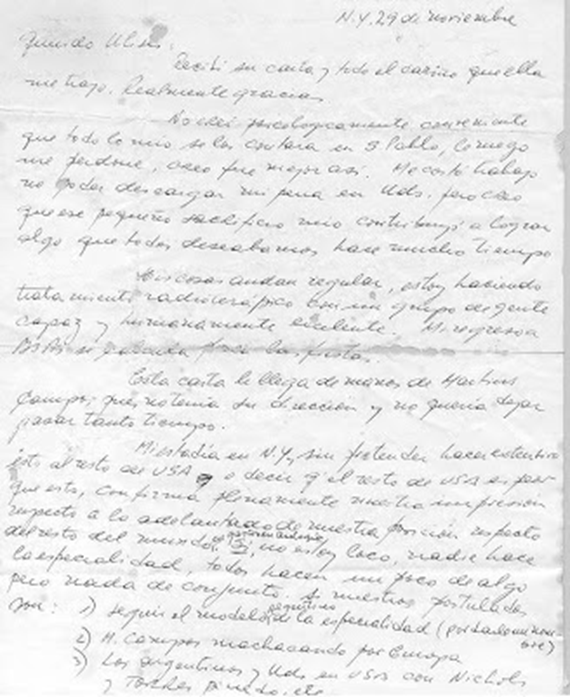 N.Y. 29 de noviembre
Querido Ulises:
Recibí su carta y todo el cariño que ella
me trajo. Realmente gracias
No creí psicologicamente conveniente
que todo lo mío se los contara en S. Pablo, le ruego
me perdone, creo fue mejor así. Me costó trabajo
no poder descargar mi pena en Uds. pero creo
que ese pequeño sacrificio mio contribuyó a lograr
algo que todos deseabamos hace mucho tiempo
Mis cosas andan regular, estoy haciendo
tratamiento radioterápico con un grupo de gente
capaz y humanamente excelente. Mi regreso a
BsAs para las fiestas.
Esta carta le llega de manos de Martins
Campos, pues no tenía su dirección y no quería dejar
pasar tanto tiempo.
Mi estadía en N.Y., sin pretender hacer extensivo
esto al resto de USA o decir q' el resto de USA es peor
que esto, confirma plenamente nuestra impresión
respecto a lo adelantado de nuestra posición respecto
del resto del mundo, no estoy loco, nadie hace
la especialidad, todos hacen un poco de algo
pero nada de conjunto. Así nuestros postulados
son: 1) seguir el modelo de la especialidad
2) H. Campos machacando por Europa
3) Los argentinos y Uds en USA con Nichols
y Torres Pinedo, etc